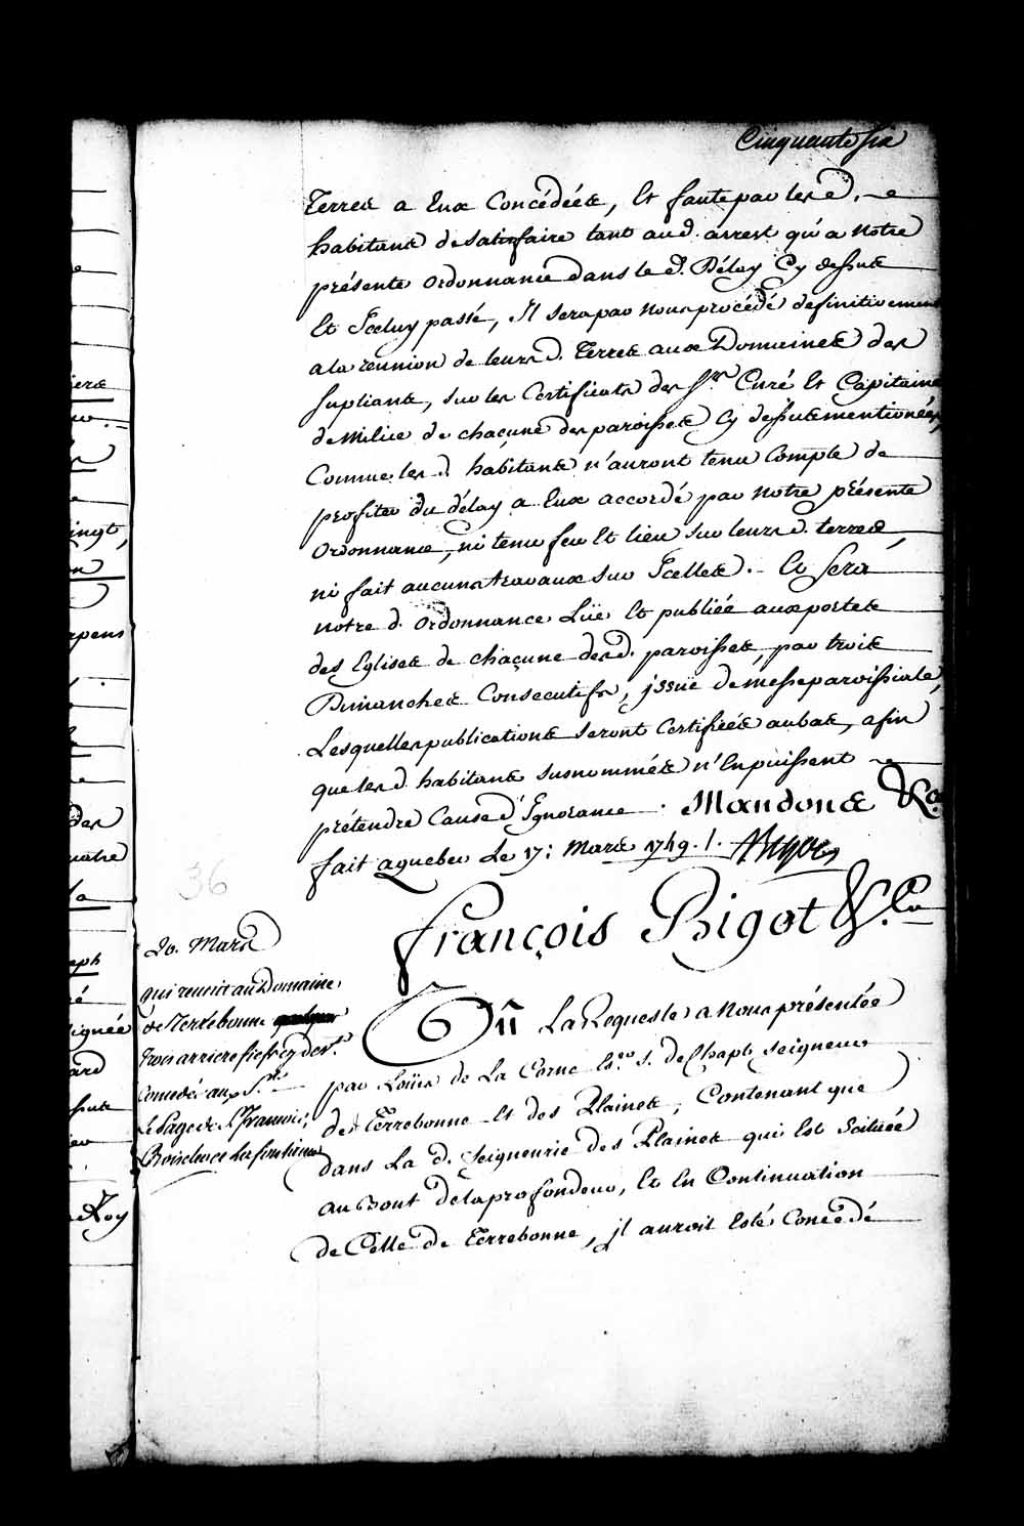 Cinquante six
Terres a Eux Concédées, Et faute par les d.
habitants de satisfaire tant aud. arrest qu'a Notre
présente ordonnance dans le d. Délay Cy dessus
Et Jceluy passé, Jl sera par nous procédé definitivement
a la reunion de leurs d. Terres aux Domaines des
supliants, sur les Certificats des Srs. Curé Et Capitaine
de milice de chaçune des paroisses Cy dessus mentionées,
Comme les d. habitants n'auront tenu Compte de
profiter du délay a Eux accordé par notre présente
ordonnance, ni tenu feu Et lieu sur leurs d. terres,
ni fait aucuns travaux sur Jcelles. Et sera
notre d. ordonnance Lüe Et publiée aux portes
des Eglises de chaçune des d. paroisses, par trois
Dimanches Consecutifs, jssüe de messe paroissiale,
Lesquelles publications seront Certifiées au bas, afin
que les d. habitants susnommés n'En puissent
prétendre Cause d'Jgnorance. Mandons &ca.
fait a quebec Le 17: Mars 1749. /. Bigot
36
François Bigot &.ca
20. Mars
qui reunit au Domaine
de Terrebonne
trois arriere fiefs cy dev.t
Concedés aux Srs.
Le Page de St. François,
Boisclerc et Lafontaine
Vû La Requeste a Nous présentée
par Loüis de La Corne Er. S. de Chapt Seigneur
de Terrebonne Et des Plaines, Contenant que
dans La d. Seigneurie des Plaines qui Est Scituée
au Bout de la profondeur, Et En Continuation
de Celle de Terrebonne, jl auroit Esté Concedé
iers
ingt,
rpens
des
uatre
la
eph
ignée
ard
ssus
Roy